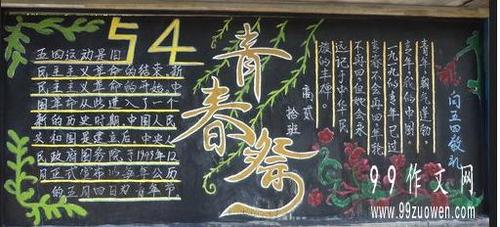 54
五四运动是旧
民主主义革命的结束，新
民主主义革命的开始，中
国革命从此进入了一个
新的历史时期，中国人民
共和国是建立后，中央人
民政府国务院于1949年12
月正式宣布以每年公历
的五月四日为青年节
青春祭
向五四致礼
青年，朝气蓬勃，
青年，我们中国
的青年已过
青春不会再
不再 但她会永
远记于中华民
族的丰碑。
高贰
拾班
99作文网
www.99zuowen.com